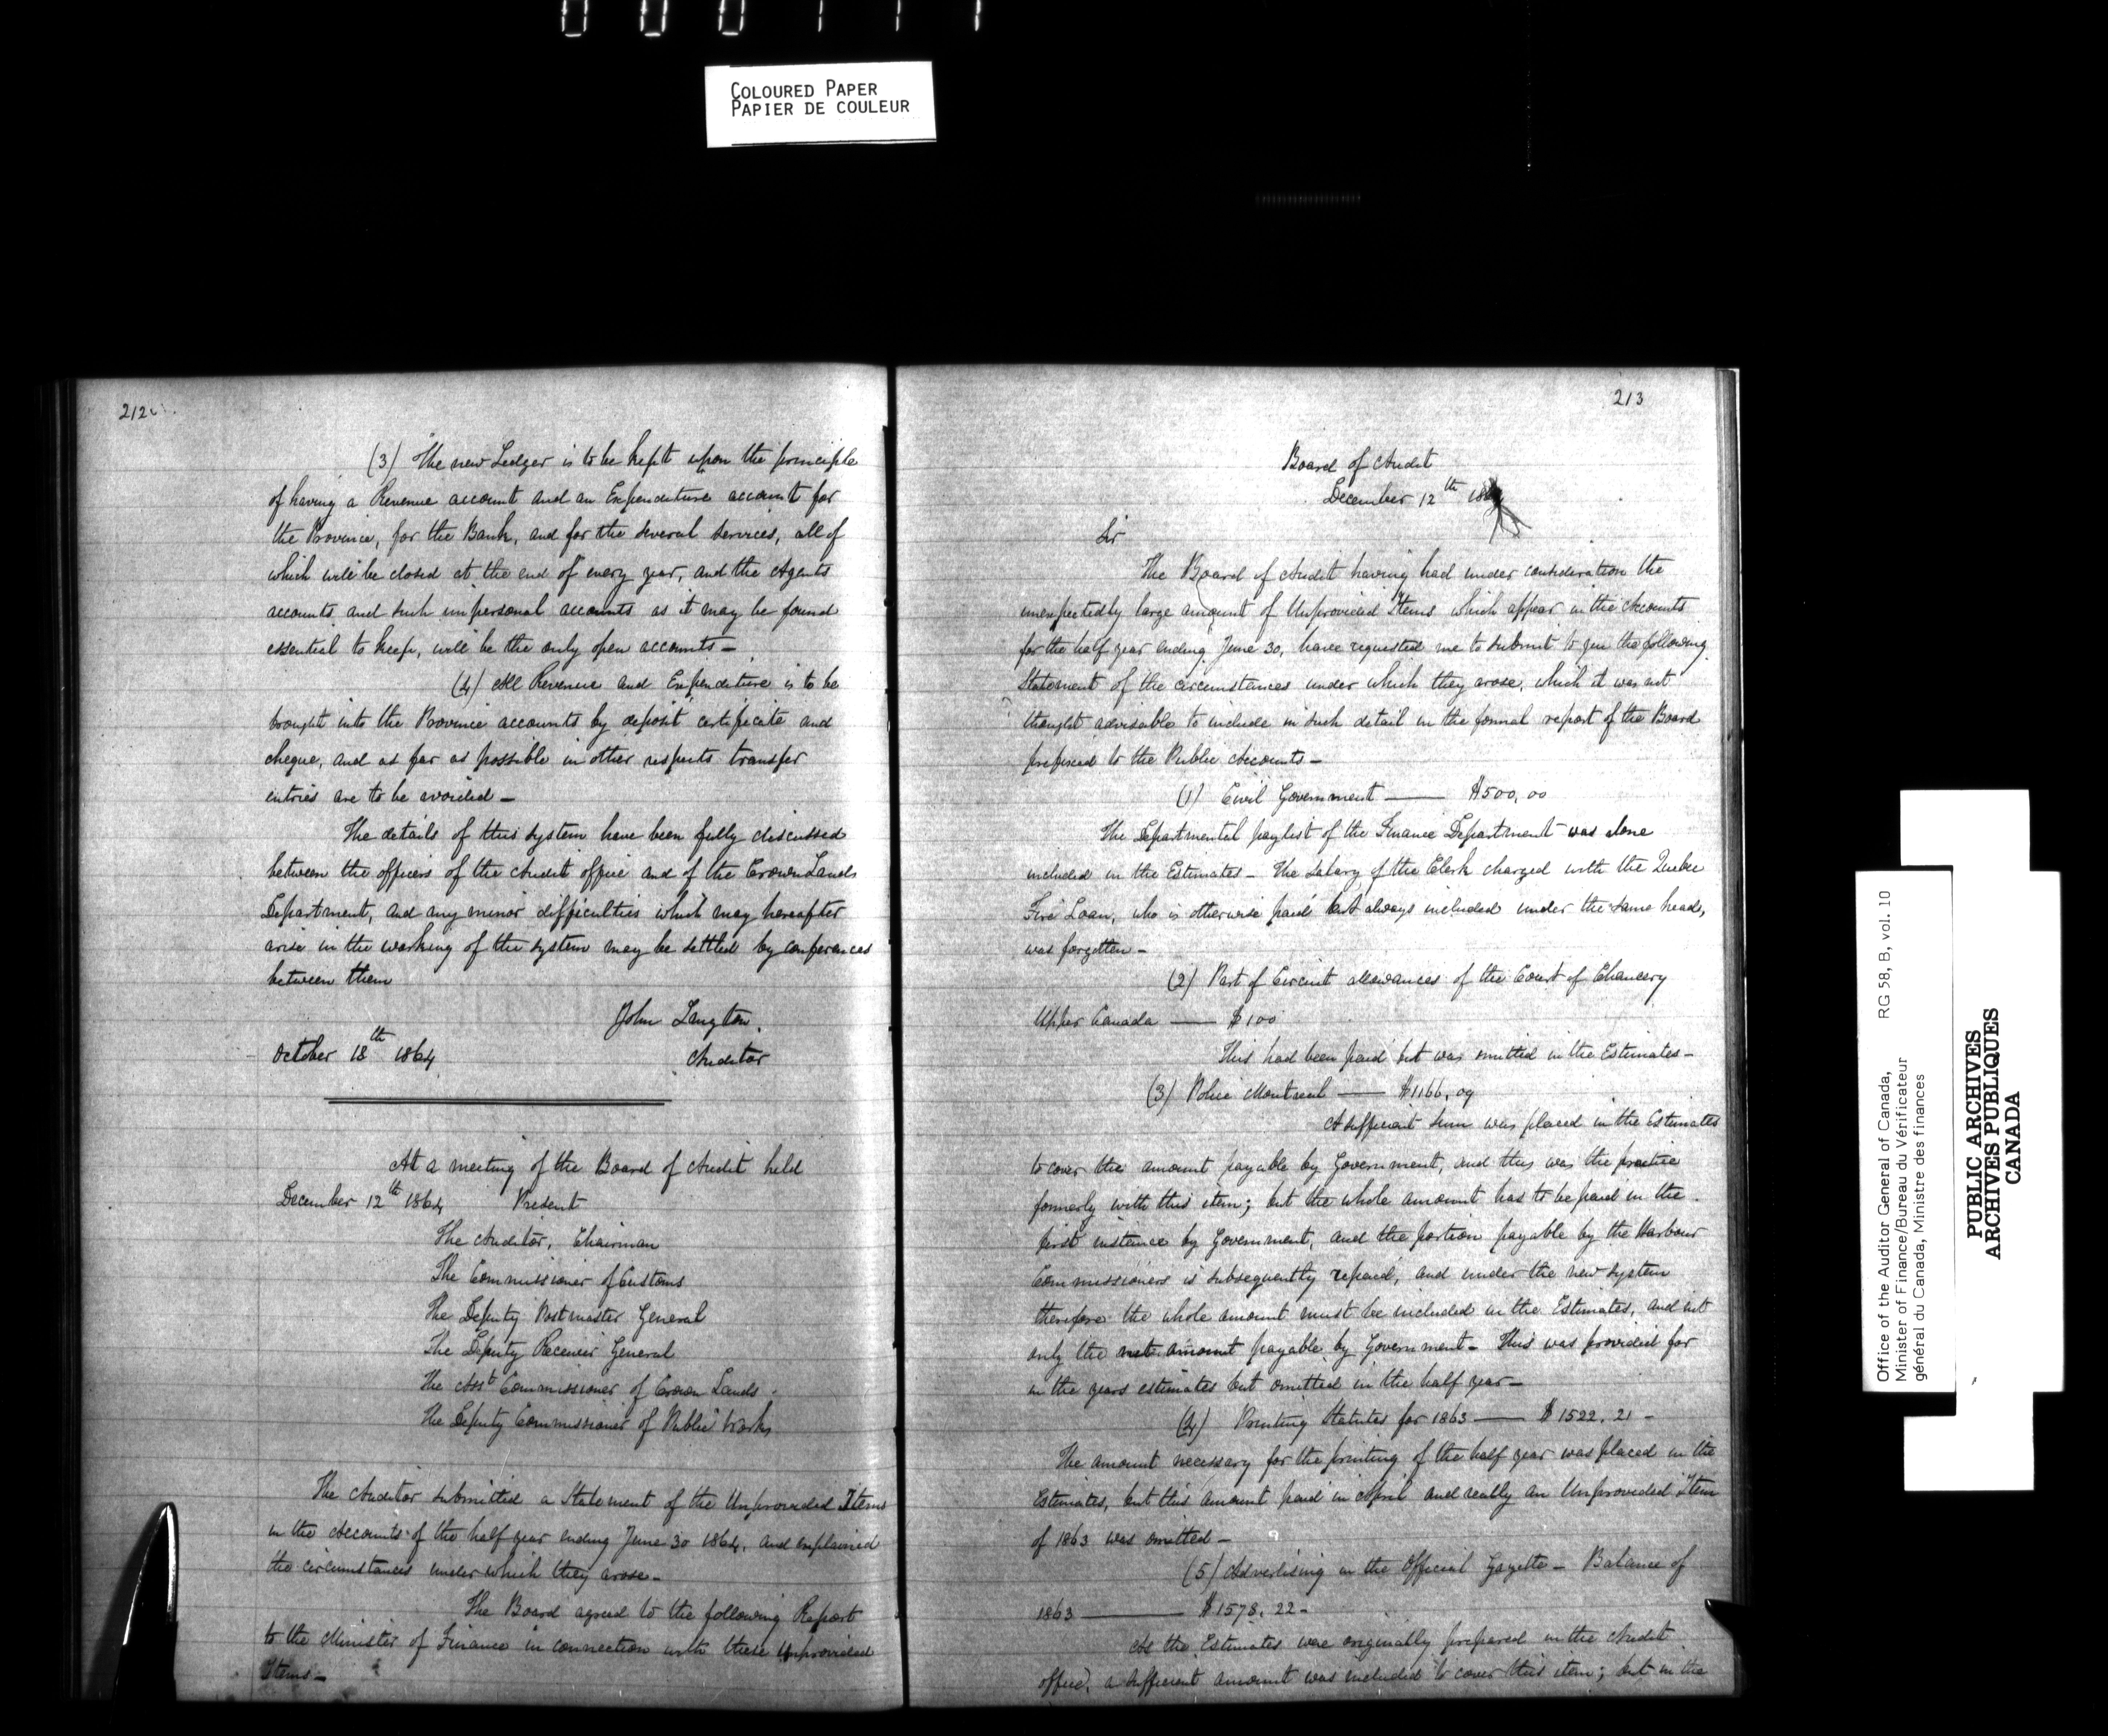 COLOURED PAPER
PAPIER DE COULEUR
212
(3) The new Ledger is to be kept upon the principle
of having a Revenue account and an Expenditure account for
the Province, for the Bank, and for the several services, all of
which will be closed at the end of every year, and the Agents
accounts and such impersonal accounts as it may be found
essential to keep, will be the only open accounts -
(4) All Revenue and Expenditure is to be
brought into the Province accounts by deposit certificate and
cheque, and as far as possible in other respects transfer
entries are to be avoided -
The details of this system have been fully discussed
between the officers of the Audit office and of the Crown Lands
Department, and any minor difficulties which may hereafter
arise in the working of the system may be settled by conferences
between them
John Langton
October 18th 1864 Auditor
At a meeting of the Board of Audit held
December 12th 1864 Present
The Auditor, Chairman
The Commissioner of Customs
The Deputy Postmaster General
The Deputy Receiver General
The Asst Commissioner of Crown Lands
The Deputy Commissioner of Public Works
The Auditor submitted a Statement of the Unprovided Items
in the Accounts of the half year ending June 30 1864, and explained
the circumstances under which they arose -
The Board agreed to the following Report
to the Minister of Finance in connection with these Unprovided
Items -
213
Board of Audit
December 12th
Sir
The Board of Audit having had under consideration the
unexpectedly large amount of Unprovided Items which appear in the Accounts
for the half year ending June 30, have requested me to submit to you the following
Statement of the circumstances under which they arose, which it was not
thought advisable to include in such detail in the formal report of the Board
prefixed to the Public Accounts -
(1) Civil Government — $500,00
The Departmental paylist of the Finance Department was alone
included in the Estimates - The Salary of the Clerk charged with the Quebec
Fire Loan, who is otherwise paid but always included under the same head,
was forgotten -
(2) Part of Circuit allowances of the Court of Chancery
Upper Canada — $100
This had been paid but was omitted in the Estimates -
(3) Police Montreal — $1166,09
A sufficient sum was placed in the Estimates
to cover the amount payable by Government, and this was the practice
formerly with this item; but the whole amount has to be paid in the
first instance by Government, and the portion payable by the Harbour
Commissioners is subsequently repaid, and under the new system
therefore the whole amount must be included in the Estimates, and not
only the net amount payable by Government - This was provided for
in the years estimates but omitted in the half year -
(4) Printing Statutes for 1863 — $1522.21 -
The amount necessary for the printing of the half year was placed in the
Estimates, but this amount paid in April and really an Unprovided Item
of 1863 was omitted -
(5) Advertising in the Official Gazette - Balance of
1863 — $1578.22 -
As the Estimates were originally prepared in the Audit
office, a sufficient amount was included to cover this item; but in the
Office of the Auditor General of Canada, RG 58, B, vol. 10
Minister of Finance/Bureau du Vérificateur
général du Canada, Ministre des finances
PUBLIC ARCHIVES
ARCHIVES PUBLIQUES
CANADA